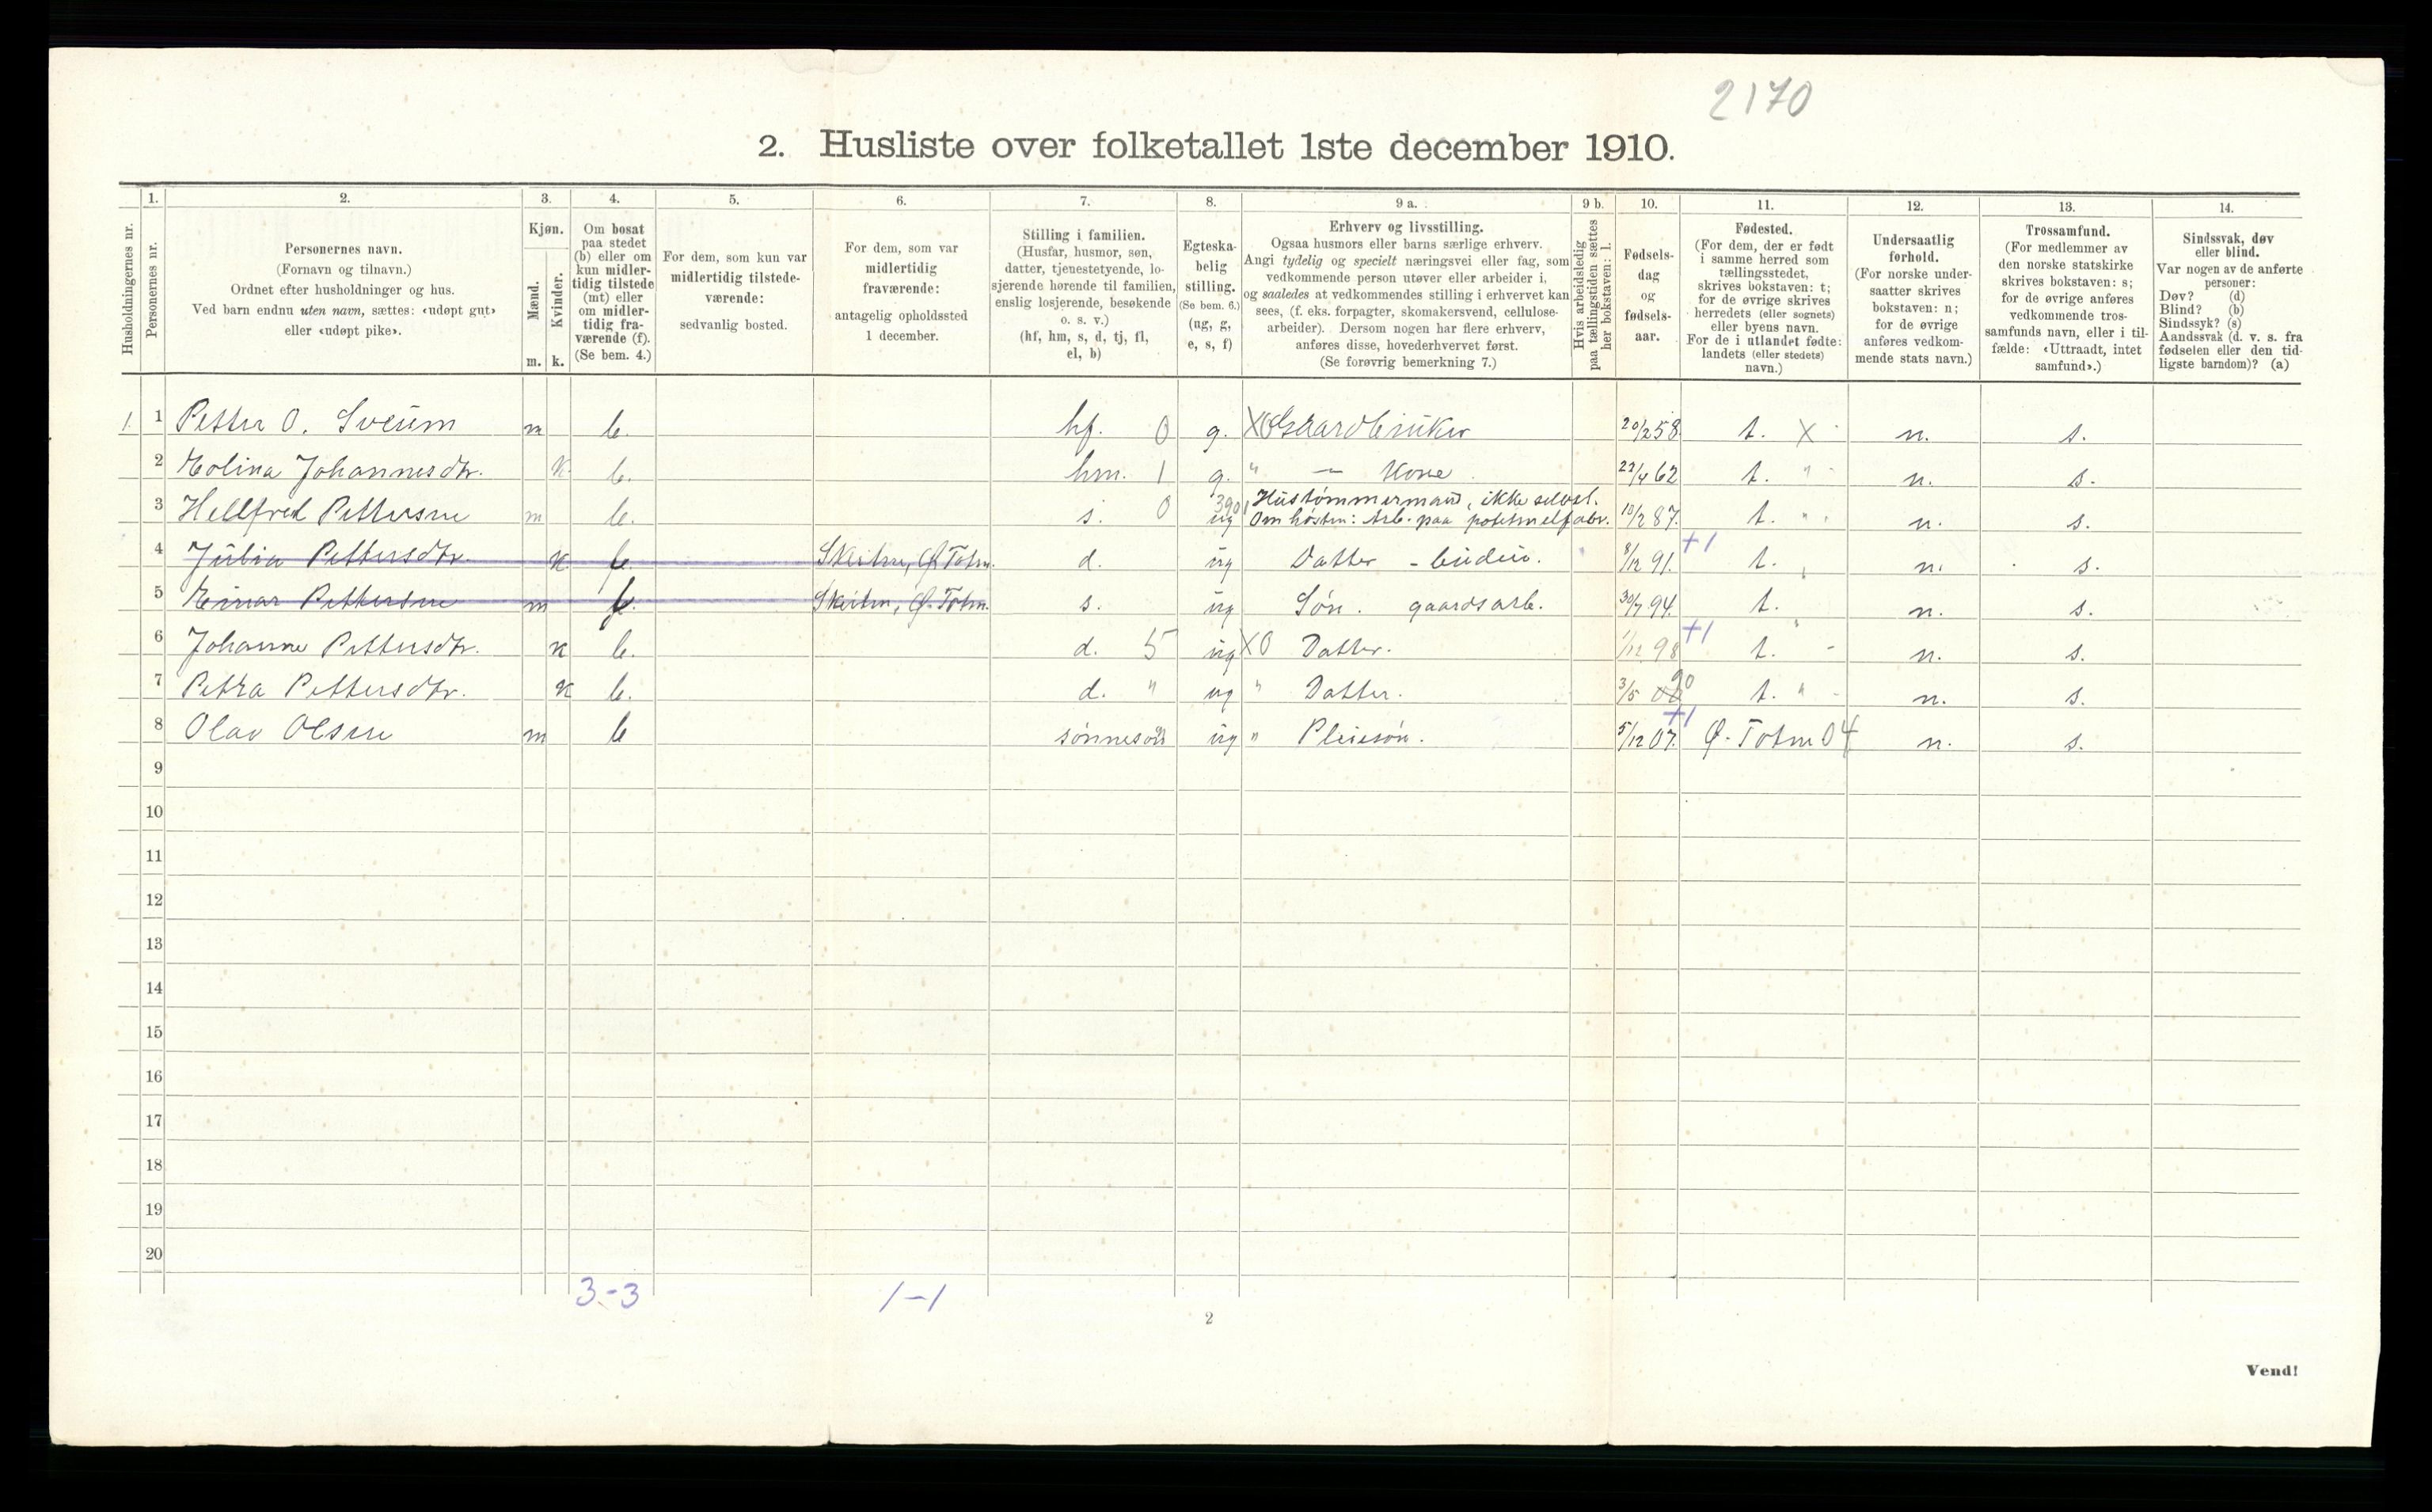 2170
2. Husliste over folketallet 1ste december 1910.
Husholdningernes nr.
1.
Personernes nr.
2.
Personernes navn.
(Fornavn og tilnavn.)
Ordnet efter husholdninger og hus.
Ved barn endnu uten navn, sættes: «udøpt gut»
eller «udøpt pike».
3.
Kjøn.
Mænd.
Kvinder.
m. k.
4.
Om bosat
paa stedet
(b) eller om
kun midler-
tidig tilstede
(mt) eller
om midler-
tidig fra-
værende (f).
(Se bem. 4.)
5.
For dem, som kun var
midlertidig tilstede-
værende:
sedvanlig bosted.
6.
For dem, som var
midlertidig
fraværende:
antagelig opholdssted
1 december.
7.
Stilling i familien.
(Husfar, husmor, søn,
datter, tjenestetyende, lo-
sjerende hørende til familien,
enslig losjerende, besøkende
o. s. v.)
(hf, hm, s, d, tj, fl,
el, b)
8.
Egteska-
belig
stilling.
(Se bem. 6.)
(ug, g,
e, s, f)
9 a.
Erhverv og livsstilling.
Ogsaa husmors eller barns særlige erhverv.
Angi tydelig og specielt næringsvei eller fag, som
vedkommende person utøver eller arbeider i,
og saaledes at vedkommendes stilling i erhvervet kan
sees, (f. eks. forpagter, skomakersvend, cellulose-
arbeider). Dersom nogen har flere erhverv,
anføres disse, hovederhvervet først.
(Se forøvrig bemerkning 7.)
9 b.
Hvis arbeidsledig
paa tællingstiden sættes
her bokstaven: l.
10.
Fødsels-
dag
og
fødsels-
aar.
11.
Fødested.
(For dem, der er født
i samme herred som
tællingsstedet,
skrives bokstaven: t;
for de øvrige skrives
herredets (eller sognets)
eller byens navn.
For de i utlandet fødte:
landets (eller stedets)
navn.)
12.
Undersaatlig
forhold.
(For norske under-
saatter skrives
bokstaven: n;
for de øvrige
anføres vedkom-
mende stats navn.)
13.
Trossamfund.
(For medlemmer av
den norske statskirke
skrives bokstaven: s;
for de øvrige anføres
vedkommende tros-
samfunds navn, eller i til-
fælde: «Uttraadt, intet
samfund».)
14.
Sindssvak, døv
eller blind.
Var nogen av de anførte
personer:
Døv? (d)
Blind? (b)
Sindssyk? (s)
Aandssvak (d. v. s. fra
fødselen eller den tid-
ligste barndom)? (a)
1. 1 Petter O. Sveum m b. hf. 0 g. X0 Gaardbruker 20/2 58 t. X n. s.
2 Kolina Johannesdtr. k b. hm. 1 g. " — Kone 22/4 62 t. " n. s.
3 Hellfred Pettersen m b. s. 0 390 ug Hustømmermand, ikke selvst.
Om høsten: Arb. paa potetmelfabr. 10/2 87. t. " n. s.
4 Julia Pettersdtr. k f. Skeihm, Ø. Totn. d. ug Datter - budeie. 8/12 91. +1 t. n. s.
5 Einar Pettersen m f. Skeihm, Ø. Totn. s. ug Søn. gaardsarb. 30/7 94. t. n. s.
6 Johanne Pettersdtr. k b. d. 5 ug X0 Datter. 1/12 98 +1 t. " n. s.
7 Petra Pettersdtr. k b. d. " ug " Datter. 3/5 00 t. " n. s.
8 Olav Olsen m b sønnesøn ug " Pleiesøn. 5/12 07. +1 Ø. Totn 04 n. s.
9
10
11
12
13
14
15
16
17
18
19
20
3-3 1-1
2
Vend!